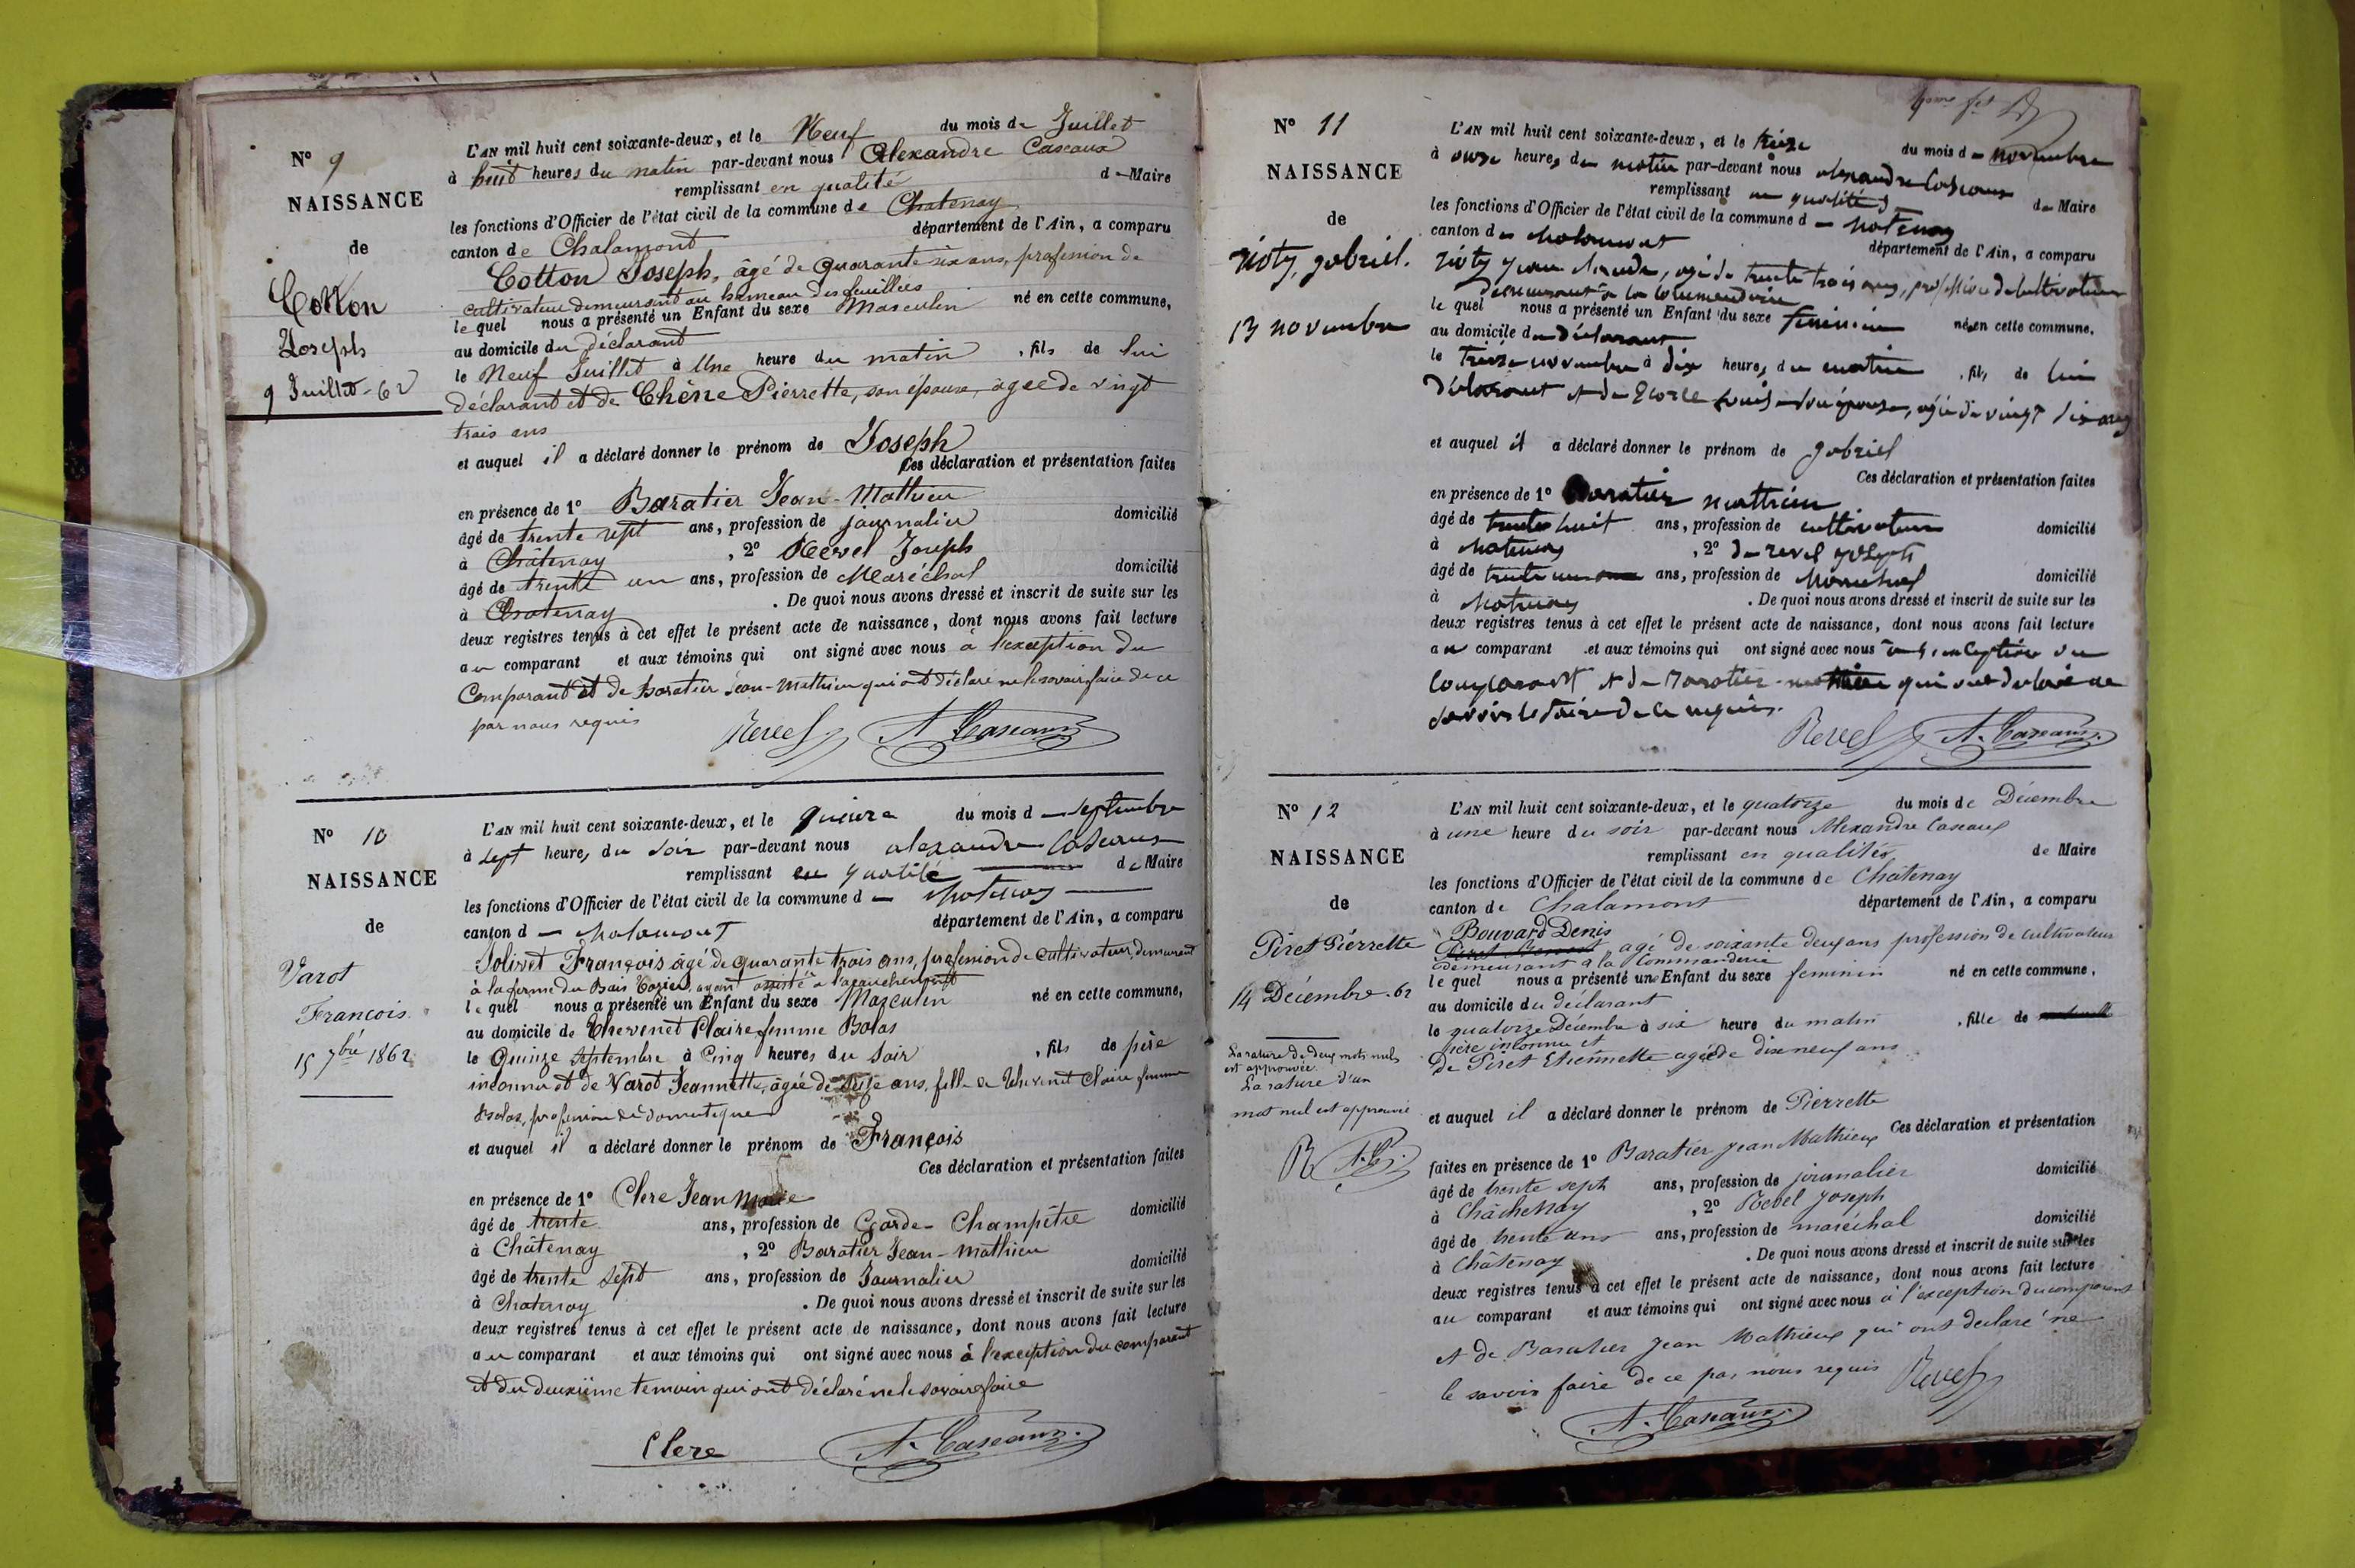 N° 9
NAISSANCE
de
Cotton
Joseph
9 Juillet-62
L'AN mil huit cent soixante-deux, et le Neuf du mois de Juillet
à huit heures du matin par-devant nous Alexandre Caseaux
remplissant en qualité de Maire
les fonctions d'Officier de l'état civil de la commune de Chatenay
canton de Chalamont département de l'Ain, a comparu
Cotton Joseph, âgé de quarante six ans, profession de
cultivateur demeurant au hameau des feuillées
le quel nous a présenté un Enfant du sexe Masculin né en cette commune,
au domicile du déclarant
le Neuf Juillet à Une heure du matin, fils de lui
déclarant et de Chêne Pierrette, son épouse, âgée de vingt
trois ans
et auquel il a déclaré donner le prénom de Joseph
Ces déclaration et présentation faites
en présence de 1° Baratier Jean-Mathieu
âgé de trente sept ans, profession de journalier domicilié
à Châtenay, 2° Revel Joseph
âgé de trente un ans, profession de Maréchal domicilié
à Chatenay. De quoi nous avons dressé et inscrit de suite sur les
deux registres tenus à cet effet le présent acte de naissance, dont nous avons fait lecture
au comparant et aux témoins qui ont signé avec nous à l'exception du
Comparant et de Baratier Jean-Mathieu qui ont déclaré ne le savoir faire de ce
par nous requis
Revel A. Caseaux
N° 10
NAISSANCE
de
Varot
François
15 7bre 1862
L'AN mil huit cent soixante-deux, et le quinze du mois de septembre
à sept heures du soir par-devant nous alexandre Caseaux
remplissant en qualité de Maire
les fonctions d'Officier de l'état civil de la commune de chatenay
canton de chalamont département de l'Ain, a comparu
Jolivet François âgé de quarante trois ans, profession de cultivateur, demeurant
à la ferme du Bois ayant assisté à l'accouchement
le quel nous a présenté un Enfant du sexe Masculin né en cette commune,
au domicile de Thevenet Claire femme Bolas
le Quinze septembre à Cinq heures du soir, fils de père
inconnu et de Varot Jeannette, âgée de seize ans, fille de Thevenet Claire femme
Bolas, profession de domestique
et auquel il a déclaré donner le prénom de François
Ces déclaration et présentation faites
en présence de 1° Clere Jean Marie
âgé de trente ans, profession de Garde-Champêtre domicilié
à Châtenay, 2° Baratier Jean-Mathieu
âgé de trente sept ans, profession de Journalier domicilié
à Chatenay. De quoi nous avons dressé et inscrit de suite sur les
deux registres tenus à cet effet le présent acte de naissance, dont nous avons fait lecture
au comparant et aux témoins qui ont signé avec nous à l'exception du comparant
et du deuxième temoin qui ont déclaré ne le savoir faire
Clere A. Caseaux.
N° 11
NAISSANCE
de
gabriel.
13 novembre
L'AN mil huit cent soixante-deux, et le treize du mois de novembre
à onze heures du matin par-devant nous alexandre Caseaux
remplissant en qualité de Maire
les fonctions d'Officier de l'état civil de la commune de chatenay
canton de chalamont département de l'Ain, a comparu
jean claude, agé de trente trois ans, profession de cultivateur
demeurant à la Commanderie
le quel nous a présenté un Enfant du sexe feminin né en cette commune,
au domicile du déclarant
le treize novembre à dix heures du matin, fils de lui
déclarant et de son épouse, agée de vingt six ans
et auquel il a déclaré donner le prénom de gabriel
Ces déclaration et présentation faites
en présence de 1° Baratier mathieu
âgé de trente huit ans, profession de cultivateur domicilié
à chatenay, 2° de revel joseph
âgé de trente un ans, profession de marechal domicilié
à chatenay. De quoi nous avons dressé et inscrit de suite sur les
deux registres tenus à cet effet le présent acte de naissance, dont nous avons fait lecture
au comparant et aux témoins qui ont signé avec nous à l'exception du
comparant et de Baratier mathieu qui ont declaré ne
savoir le faire de ce requis.
Revel A. Caseaux.
N° 12
NAISSANCE
de
Piret Pierrette
14 Décembre.62
La rature de deux mots nuls
est approuvée.
La rature d'un
mot nul est approuvée
R A. C.
L'AN mil huit cent soixante-deux, et le quatorze du mois de Décembre
à une heure du soir par-devant nous Alexandre Caseaux
remplissant en qualités de Maire
les fonctions d'Officier de l'état civil de la commune de Châtenay
canton de Chalamont département de l'Ain, a comparu
Bouvard Denis
agé de soixante deux ans profession de cultivateur
demeurant à la Commanderie
le quel nous a présenté une Enfant du sexe feminin né en cette commune,
au domicile du déclarant
le quatorze Décembre à six heure du matin, fille de
père inconnu et
de Piret Etiennette agée de dix neuf ans
et auquel il a déclaré donner le prénom de Pierrette
Ces déclaration et présentation
faites en présence de 1° Baratier Jean Mathieu
âgé de trente sept ans, profession de journalier domicilié
à Châthenay, 2° Revel Joseph
âgé de trente ans ans, profession de maréchal domicilié
à Châtenay. De quoi nous avons dressé et inscrit de suite sur les
deux registres tenus à cet effet le présent acte de naissance, dont nous avons fait lecture
au comparant et aux témoins qui ont signé avec nous à l'exception du comparant
et de Baratier Jean Mathieu qui ont declaré ne
le savoir faire de ce par nous requis Revel
A. Caseaux.